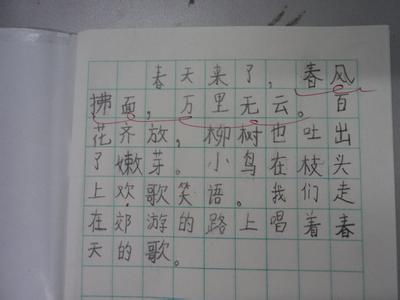 春天来了，春风
拂面，万里无云。百
花齐放，柳树也吐出
了嫩芽。小鸟在枝头
上欢歌笑语。我们走
在郊游的路上唱着春
天的歌。